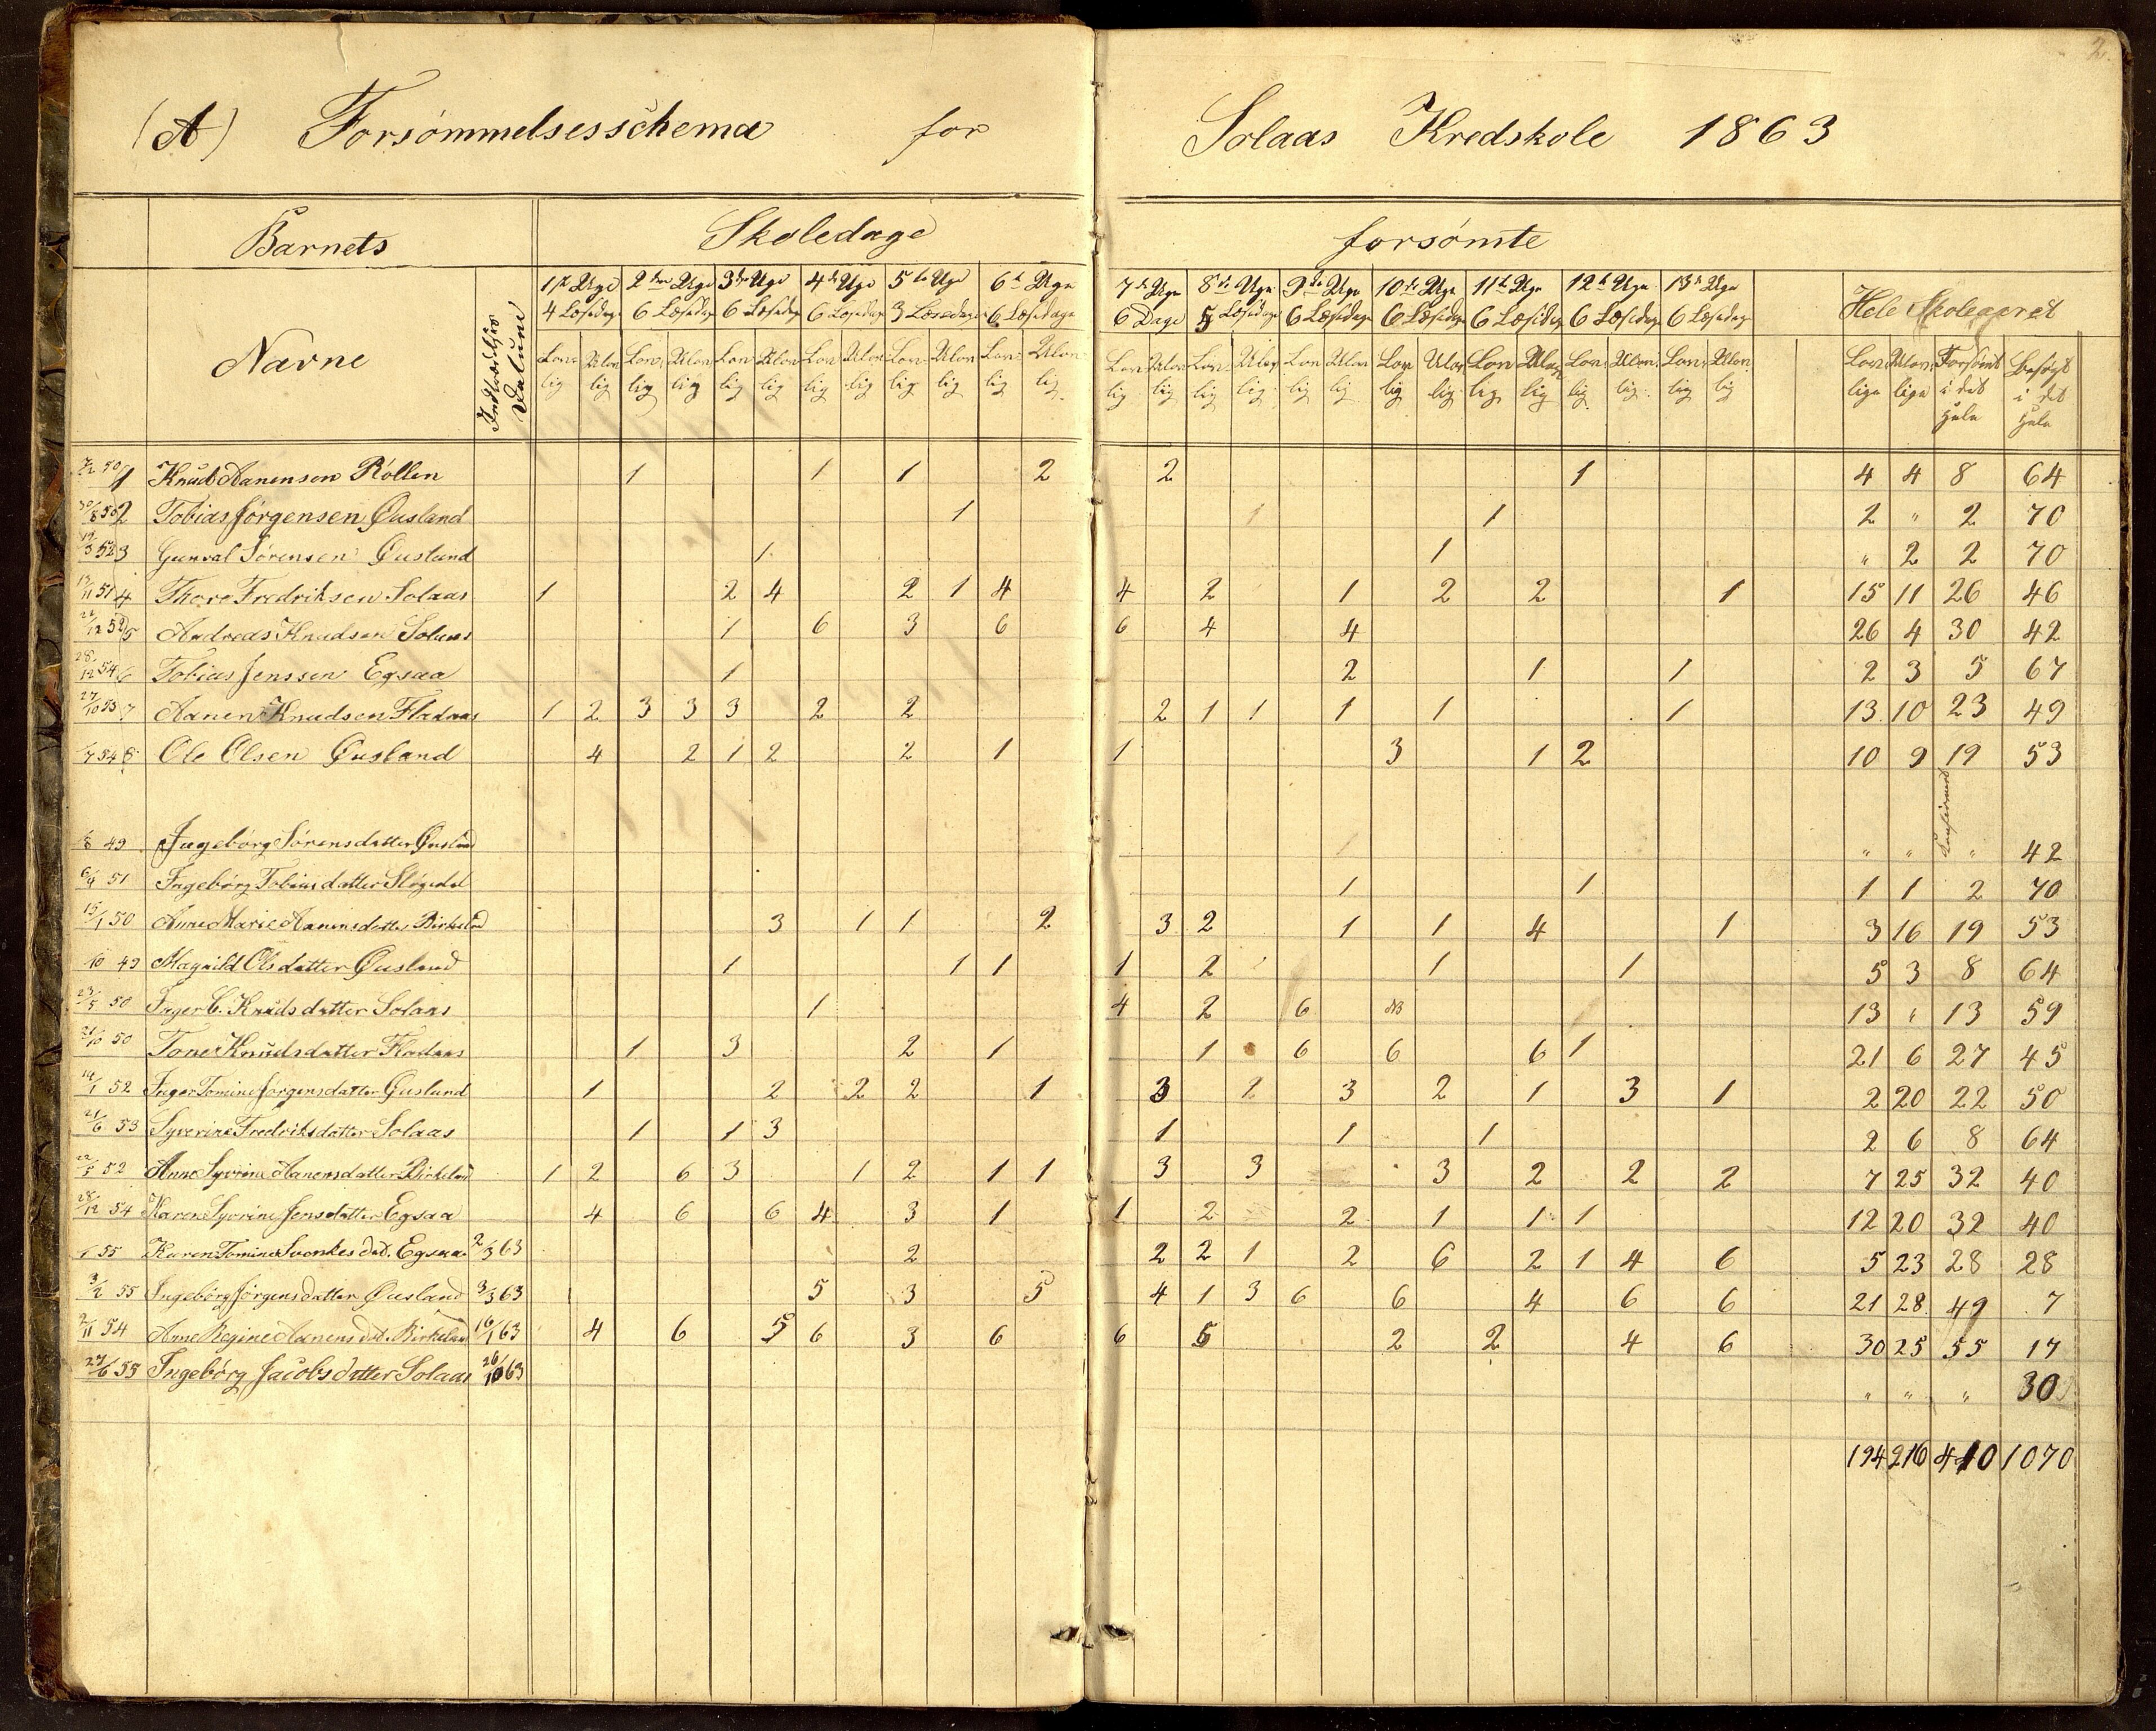 2.
(A) Forsømmelsesschema for Solaas Kredskole 1863
Barnets Skoledage forsømte
1ste Uge 2den Uge 3die Uge 4de Uge 5te Uge 6te Uge 7de Uge 8de Uge 9de Uge 10de Uge 11te Uge 12te Uge 13de Uge Hele Skoleaaret
4 Læsedage 6 Læsedage 6 Læsedage 6 Læsedage 3 Læsedage 6 Læsedage 6 Dage 5 Læsedage 6 Læsedage 6 Læsedage 6 Læsedage 6 Læsedage 6 Læsedage
Navne Indtrædelses Datum
Lovlig Ulovlig Lovlig Ulovlig Lovlig Ulovlig Lovlig Ulovlig Lovlig Ulovlig Lovlig Ulovlig Lovlig Ulovlig Lovlig Ulovlig Lovlig Ulovlig Lovlig Ulovlig Lovlig Ulovlig Lovlig Ulovlig Lovlig Ulovlig Lovlige Ulovlige Forsømt i det Hele Besøgt i det Hele
50 1 Knud Aanensen Røllen 1 1 1 2 2 1 4 4 8 64
30/8 50 2 Tobias Jørgensen Øusland 1 1 1 2 " 2 70
52 3 Gunval Sørensen Øusland 1 1 " 2 2 70
51 4 Thore Fredriksen Solaas 1 2 4 2 1 4 4 2 1 2 2 1 15 11 26 46
52 5 Andreas Knudsen Solaas 1 6 3 6 6 4 4 26 4 30 42
28/12 54 6 Tobias Jenssen Egsaa 1 2 1 1 2 3 5 67
27/10 53 7 Aanen Knudsen Fladaas 1 2 3 3 3 2 2 2 1 1 1 1 1 13 10 23 49
54 8 Ole Olsen Øusland 4 2 1 2 2 1 1 3 1 2 10 9 19 53
49 Ingebørg Sørensdatter Øusland " " " 42
6/4 51 Ingebørg Tobiasdatter Sløgedal 1 1 1 1 2 70
15/1 50 Anne Marie Aanensdatter Birkeland 3 1 1 2 3 2 1 1 4 1 3 16 19 53
49 Magnild Olsdatter Øusland 1 1 1 1 2 1 1 5 3 8 64
23/5 50 Inger C. Knudsdatter Solaas 1 4 2 6 NB 13 " 13 59
21/10 50 Tone Knudsdatter Fladaas 1 3 2 1 1 6 6 6 1 21 6 27 45
52 Inger Tomine Jørgensdatter Øusland 1 2 2 2 1 3 2 3 2 1 3 1 2 20 22 50
21/6 53 Syverine Fredriksdatter Solaas 1 1 3 1 1 1 2 6 8 64
22/5 52 Anne Syvrine Aanensdatter Birkeland 1 2 6 3 1 2 1 1 3 3 3 2 2 2 7 25 32 40
28/12 54 Karen Syvrine Jensdatter Egsaa 4 6 6 4 3 1 1 2 2 1 1 1 12 20 32 40
55 Karen Tomine Svenkesdat. Egsaa 2/3 63 2 2 2 1 2 6 2 1 4 6 5 23 28 28
3/2 55 Ingebørg Jørgensdatter Øusland 3/3 63 5 3 5 4 1 3 6 6 4 6 6 21 28 49 7
2/11 54 Anne Regine Aanensdat. Birkeland 16/1 63 4 6 5 6 3 6 6 5 2 2 4 6 30 25 55 17
27/6 55 Ingebørg Jacobsdatter Solaas 26/10 63 " " " 30
194 216 410 1070